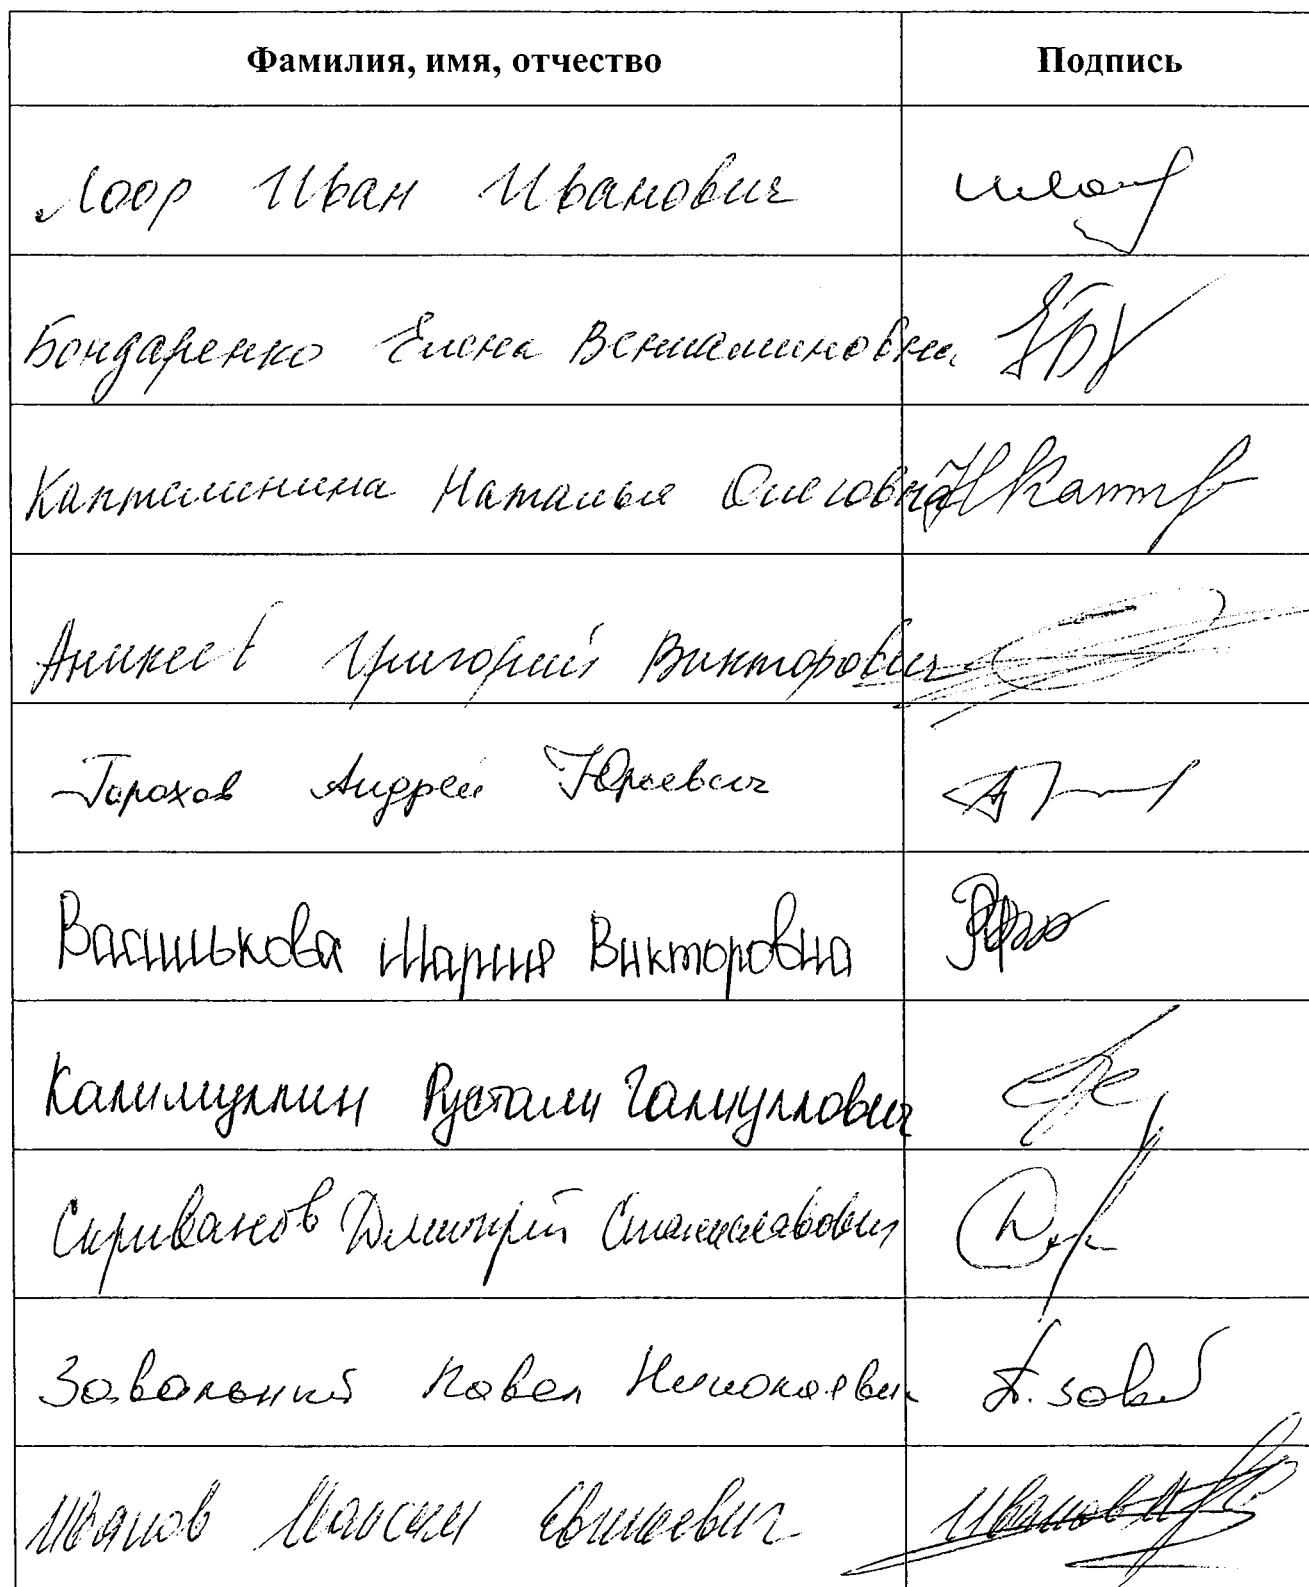 Фамилия, имя, отчество Подпись
Лоор Иван Иванович
Бондаренко Елена Вениаминовна
Каптелинина Наталья Олеговна
Аникеев Григорий Викторович
Горохов Андрей Юрьевич
Василькова Мария Викторовна
Калимуллин Рустам Галиуллович
Скриванов Дмитрий Станиславович
Завальный Павел Николаевич П. Зав
Иванов Максим Евгеньевич Иванов